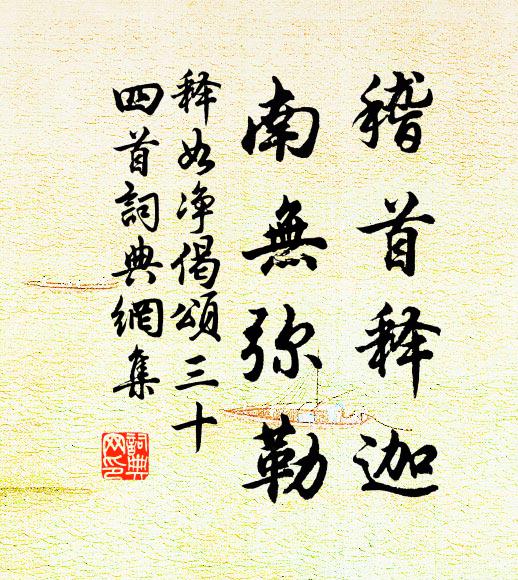 稽首释迦
南無弥勒
释如净偈頌三十
四首詞典網集
詞典网印